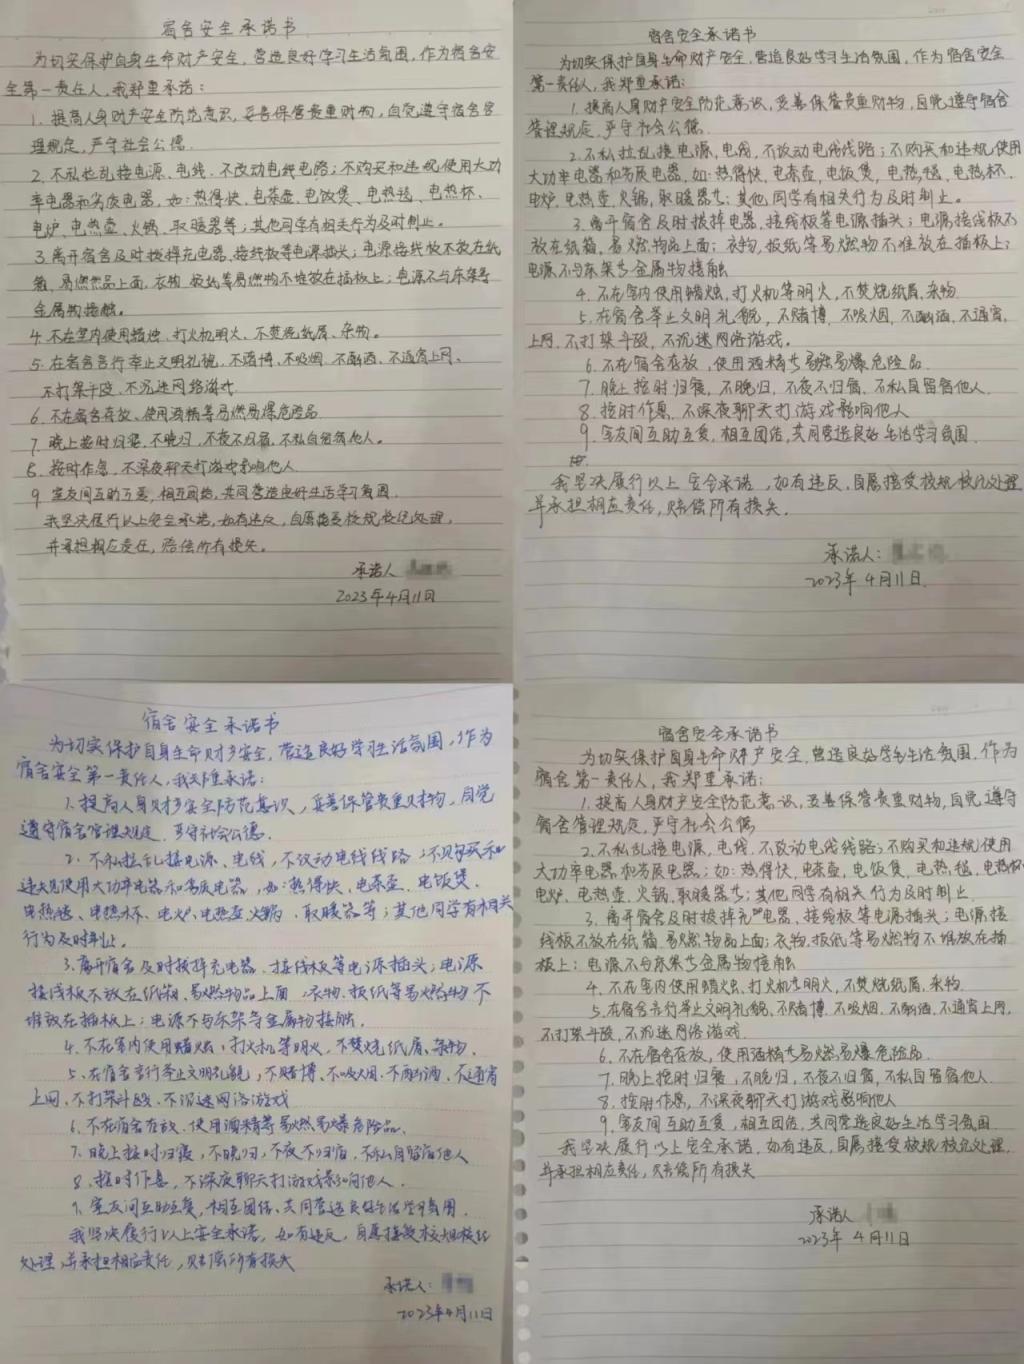 宿舍安全承诺书
为切实保护自身生命财产安全,营造良好学习生活氛围,作为宿舍安
全第一责任人,我郑重承诺:
1. 提高人身财产安全防范意识,妥善保管贵重财物,自觉遵守宿舍管
理规定,严守社会公德.
2. 不私拉乱接电源、电线、不改动电线电路;不购买和违规使用大功
率电器和劣质电器,如:热得快、电茶壶、电饭煲、电热毯、电热杯、
电炉、电热壶、火锅、取暖器等;其他同学有相关行为及时制止.
3. 离开宿舍及时拔掉充电器、接线板等电源插头;电源接线板不放在纸
箱、易燃物品上面,衣物、报纸等易燃物不堆放在插板上;电源不与床架等
金属物接触。
4. 不在室内使用蜡烛、打火机明火、不焚烧纸屑、杂物。
5. 在宿舍言行举止文明礼貌、不赌博、不吸烟、不酗酒、不通宵上网、
不打架斗殴、不沉迷网络游戏
6. 不在宿舍存放、使用酒精等易燃易爆危险品
7. 晚上按时归寝,不晚归、不夜不归宿、不私自留宿他人。
8. 按时作息、不深夜聊天打游戏影响他人
9. 室友间互助互爱,相互团结,共同营造良好生活学习氛围.
我坚决履行以上安全承诺,如有违反,自愿接受校规校纪处理,
并承担相应责任,赔偿所有损失。
承诺人
2023年4月11日
宿舍安全承诺书
为切实保护自身生命财产安全,营造良好学习生活氛围,作为宿舍安全
第一责任人,我郑重承诺:
1. 提高人身财产安全防范意识,妥善保管贵重财物,自觉遵守宿舍
管理规定,严守社会公德.
2. 不私拉乱接电源,电线,不改动电线线路;不购买和违规使用
大功率电器和劣质电器,如:热得快,电茶壶,电饭煲,电热毯,电热杯.
电炉,电热壶,火锅,取暖器等;其他同学有相关行为及时制止.
3. 离开宿舍及时拔掉电器,接线板等电源插头;电源接线板不
放在纸箱,易燃物品上面;衣物,报纸等易燃物不堆放在插板上;
电源不与床架等金属物接触
4. 不在室内使用蜡烛,打火机等明火,不焚烧纸屑.杂物.
5. 在宿舍举止文明礼貌,不赌博,不吸烟,不酗酒,不通宵
上网.不打架斗殴,不沉迷网络游戏.
6. 不在宿舍存放,使用酒精等易燃易爆危险品
7. 晚上按时归寝,不晚归,不夜不归宿,不私自留宿他人.
8. 按时作息,不深夜聊天打游戏影响他人
9. 室友间互助互爱,相互团结,共同营造良好生活学习氛围.
我坚决履行以上安全承诺,如有违反,自愿接受校规校纪处理
并承担相应责任,赔偿所有损失.
承诺人:
2023年4月11日.
宿舍安全承诺书
为切实保护自身生命财产安全,营造良好学习生活氛围,作为
宿舍安全第一责任人,我郑重承诺:
1. 提高人身财产安全防范意识,妥善保管贵重财物,自觉
遵守宿舍管理规定,严守社会公德.
2. 不私拉乱接电源、电线,不改动电线线路;不购买和
违规使用大功率电器和劣质电器,如:热得快、电茶壶、电饭煲、
电热毯、电热杯、电炉、电热壶、火锅、取暖器等;其他同学有相关
行为及时制止。
3. 离开宿舍及时拔掉充电器、接线板等电源插头;电源
接线板不放在纸箱、易燃物品上面,衣物、报纸等易燃物不
堆放在插板上;电源不与床架等金属物接触.
4. 不在室内使用蜡烛、打火机等明火,不焚烧纸屑、杂物.
5. 在宿舍言行举止文明礼貌,不赌博、不吸烟、不酗酒、不通宵
上网、不打架斗殴、不沉迷网络游戏
6. 不在宿舍存放、使用酒精等易燃易爆危险品.
7. 晚上按时归寝,不晚归,不夜不归宿,不私自留宿他人
8. 按时作息,不深夜聊天打游戏影响他人.
9. 室友间互助互爱,相互团结、共同营造良好生活学习氛围.
我坚决履行以上安全承诺,如有违反,自愿接受校规校纪
处理,并承担相应责任,赔偿所有损失
承诺人:
2023年4月11日
宿舍安全承诺书
为切实保护自身生命财产安全,营造良好学习生活氛围,作为
宿舍第一责任人,我郑重承诺:
1. 提高人身财产安全防范意识,妥善保管贵重财物,自觉遵守
宿舍管理规定,严守社会公德
2. 不私乱接电源,电线.不改动电线线路;不购买和违规使用
大功率电器和劣质电器;如:热得快,电茶壶,电饭煲,电热毯,电热杯
电炉,电热壶,火锅,取暖器等;其他同学有相关行为及时制止.
3. 离开宿舍及时拔掉充电器、接线板等电源插头;电源接
线板不放在纸箱.易燃物品上面;衣物.报纸等易燃物不堆放在插
板上;电源不与床架等金属物接触
4. 不在室内使用蜡烛、打火机等明火,不焚烧纸屑,杂物.
5. 在宿舍言行举止文明礼貌,不赌博.不吸烟,不酗酒.不通宵上网,
不打架斗殴,不沉迷网络游戏.
6. 不在宿舍存放,使用酒精等易燃易爆危险品.
7. 晚上按时归寝,不晚归,不夜不归宿,不私自留宿他人.
8. 按时作息,不深夜聊天打游戏影响他人
9. 室友间互助互爱,相互团结,共同营造良好生活学习氛围
我坚决履行以上安全承诺,如有违反,自愿接受校规校纪处理,
并承担相应责任,赔偿所有损失
承诺人
2023年4月11日